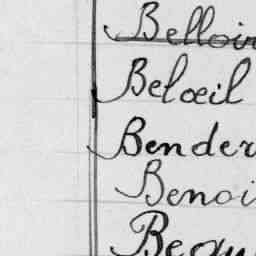 Belloin
Belœil
Bender
Benoi
Bequ